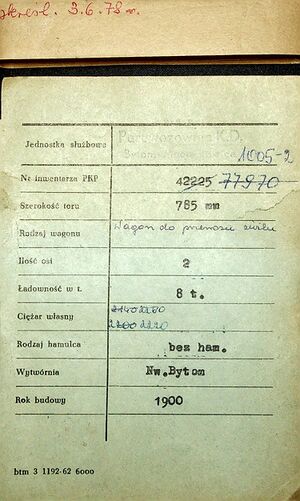 skreśl. 3.6.78 r.
Jednostka służbowa Parowozownia K.D. 1005-2
Nr inwentarza PKP 42225 77970
Szerokość toru 785 mm
Rodzaj wagonu Wagon do
Ilość osi 2
Ładowność w t. 8 t.
Ciężar własny
2200 2220
Rodzaj hamulca bez ham.
Wytwórnia Nw.Bytom
Rok budowy 1900
btm 3 1192-62 6000